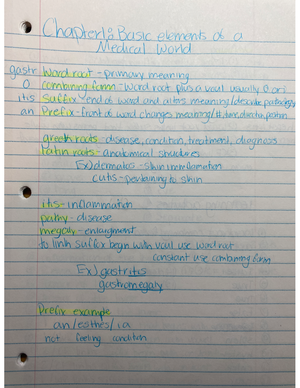 Chapter 1: Basic elements of a
Medical World
gastr Word root - primary meaning
o combining form - word root plus a vowl usually O or i
itis Suffix - end of word and alters meaning/describe pathology
an Prefix - front of word changes meaning/#, time, direction, position
greek roots - disease, condition, treatment, diagnosis
latin roots - anatomical structures
Ex) dermatos - skin inflammation
cutis - pertaining to skin
itis - inflammation
pathy - disease
megaly - enlargment
to link suffix begin with vowl use word root
constant use combining form
Ex) gastritis
gastromegaly
Prefix example
an/esthes/ia
not feeling condition